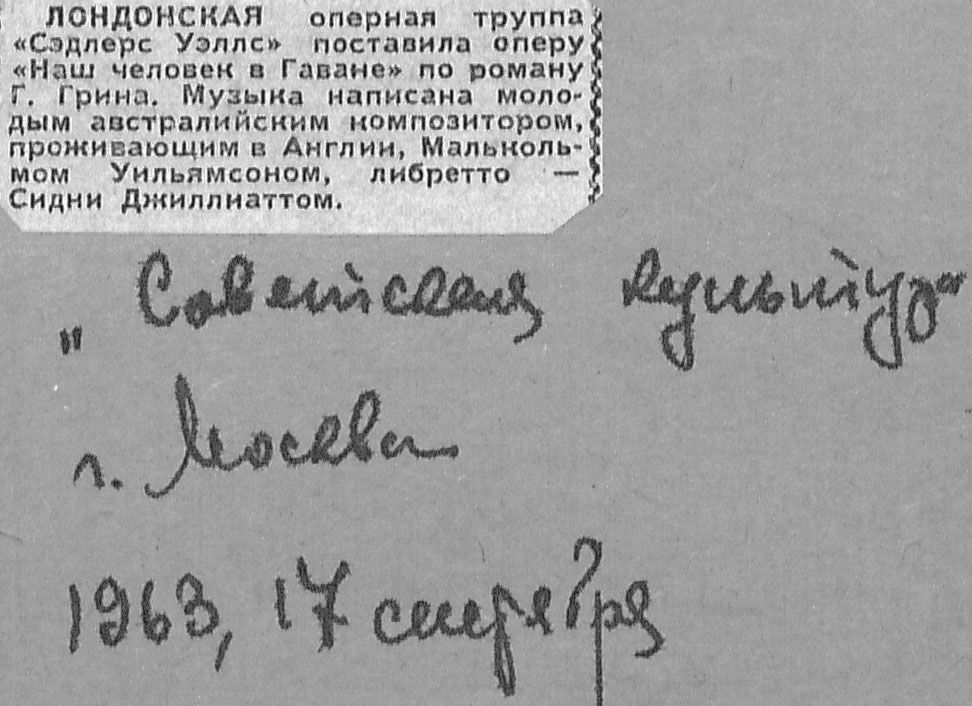 ЛОНДОНСКАЯ оперная труппа
«Сэдлерс Уэллс» поставила оперу
«Наш человек в Гаване» по роману
Г. Грина. Музыка написана моло-
дым австралийским композитором,
проживающим в Англии, Малькoль-
мом Уильямсоном, либретто —
Сидни Джиллиаттом.
„Советская культура“
г. Москва
1963, 17 сентября